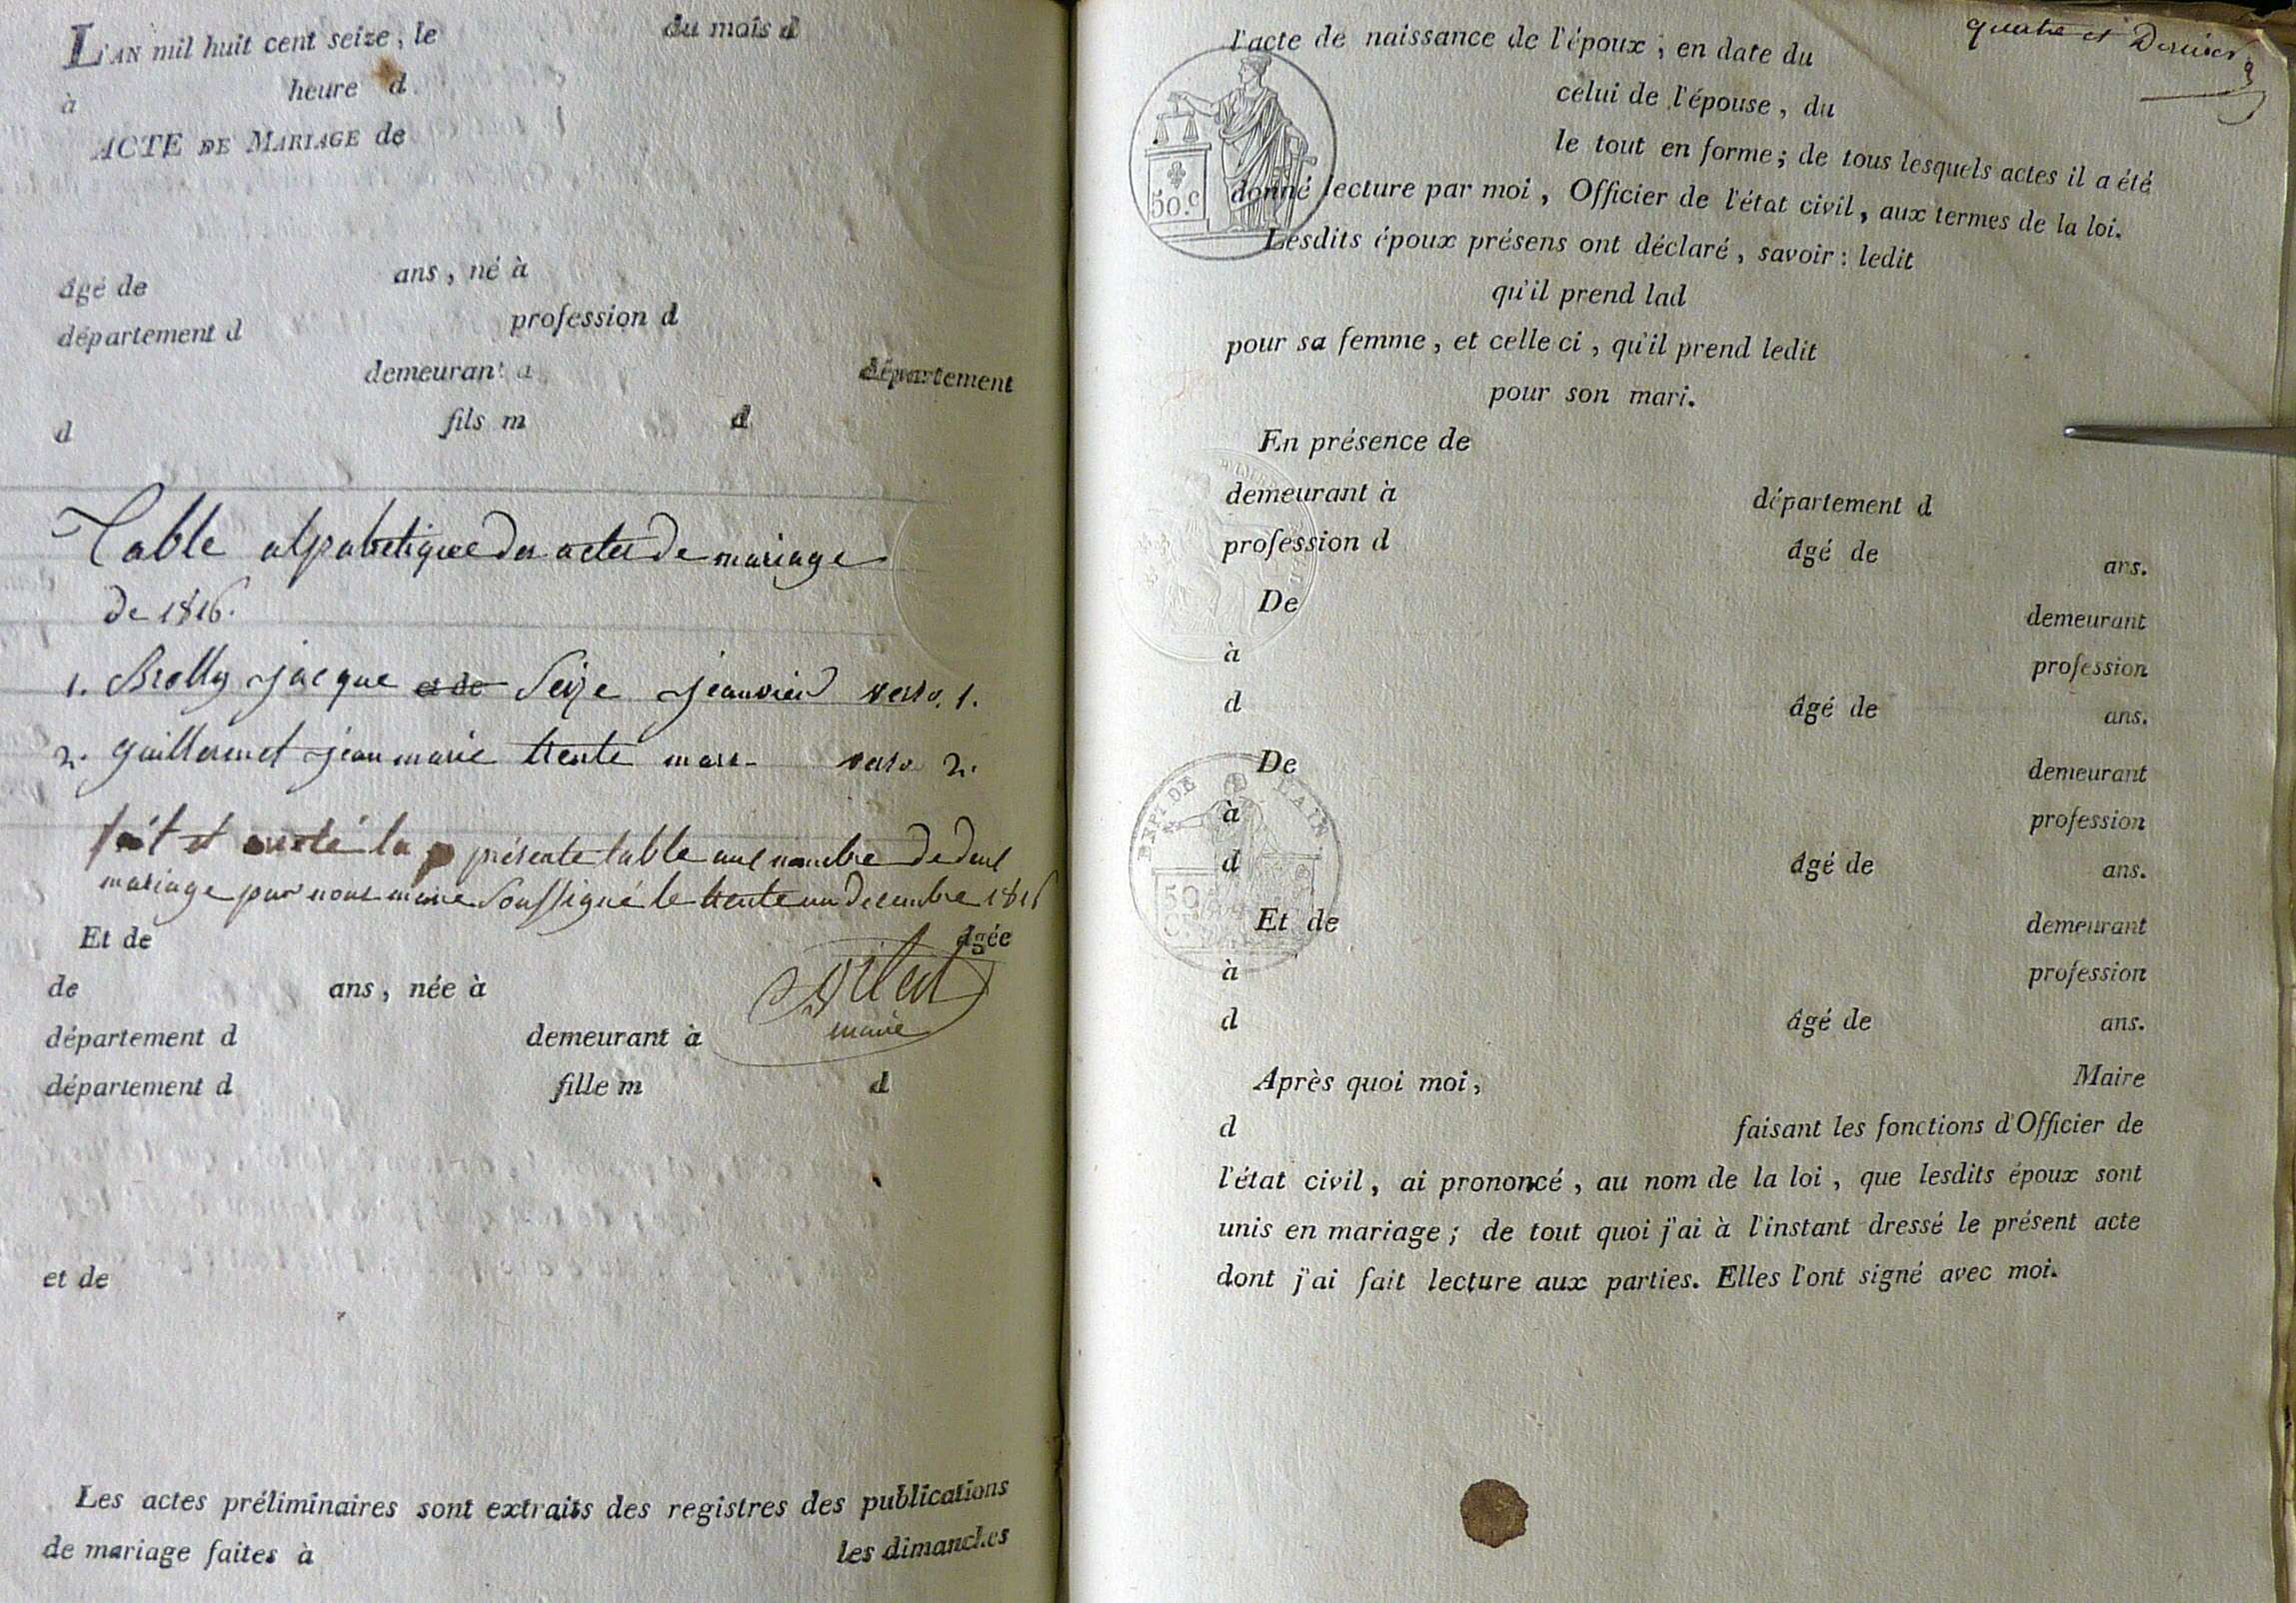 L'AN mil huit cent seize, le du mois d
à heure d
ACTE DE MARIAGE de
âgé de ans, né à
département d profession d
demeurant à département
d fils m d
Table alpabetique des actes de mariage
de 1816.
1. Brolly jacque et de Seize jeanvier verso. 1.
2. guillermet jean marie trente mars verso 2.
fait et aresté la présente table aux nombre de deux
mariage par nous maire soussigné le trente un decembre 1816
Et de âgée
de ans, née à
maire
département d demeurant à
département d fille m d
et de
Les actes préliminaires sont extraits des registres des publications
de mariage faites à les dimanches
quatre et Dernier
l'acte de naissance de l'époux ; en date du
celui de l'épouse, du
le tout en forme ; de tous lesquels actes il a été
donné lecture par moi, Officier de l'état civil, aux termes de la loi.
50.c
Lesdits époux présens ont déclaré, savoir : ledit
qu'il prend lad
pour sa femme, et celle ci, qu'il prend ledit
pour son mari.
En présence de
demeurant à département d
profession d âgé de ans.
De demeurant
à profession
d âgé de ans.
De demeurant
DEPT DE L'AIN
à profession
d âgé de ans.
50
Et de demeurant
à profession
d âgé de ans.
Après quoi moi, Maire
d faisant les fonctions d'Officier de
l'état civil, ai prononcé, au nom de la loi, que lesdits époux sont
unis en mariage ; de tout quoi j'ai à l'instant dressé le présent acte
dont j'ai fait lecture aux parties. Elles l'ont signé avec moi.